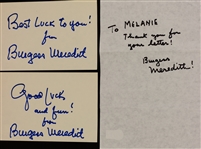 Best Luck to you!
from
Burgess Meredith
Good Luck
and fun!
from
Burgess Meredith
To MELANIE
Thank you for
your letter!
Burgess
Meredith!